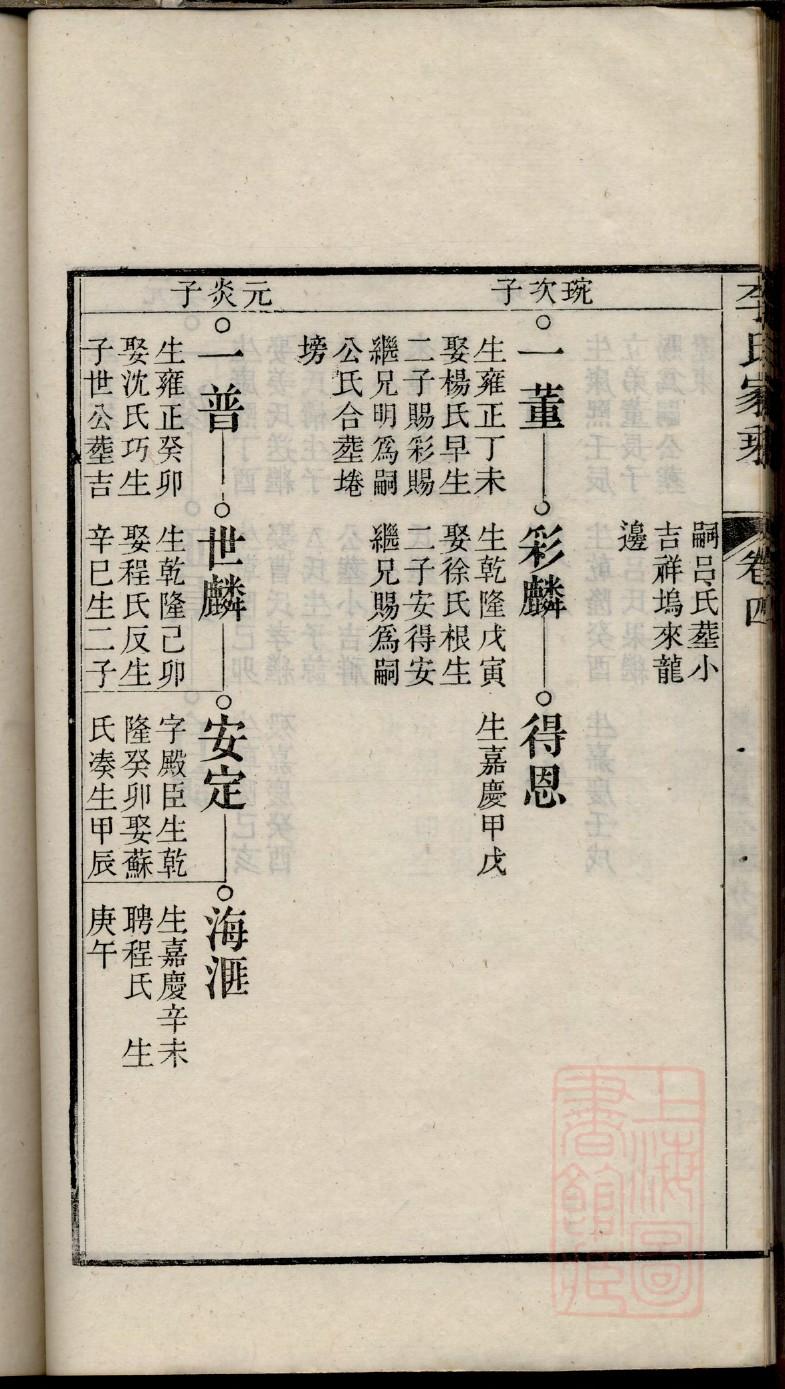 李氏家乘
卷四
嗣呂氏塟小
吉祥塢來龍
邊
琬次子
一董
生雍正丁未
娶楊氏早生
二子賜彩賜
繼兄明爲嗣
公氏合塟埢
塝
彩麟
生乾隆戊寅
娶徐氏根生
二子安得安
繼兄賜爲嗣
得恩
生嘉慶甲戌
元炎子
一普
生雍正癸卯
娶沈氏巧生
子世公塟吉
世麟
生乾隆己卯
娶程氏反生
辛巳生二子
安定
字殿臣生乾
隆癸卯娶蘇
氏凑生甲辰
海滙
生嘉慶辛未
聘程氏 生
庚午
上海圖
書館藏